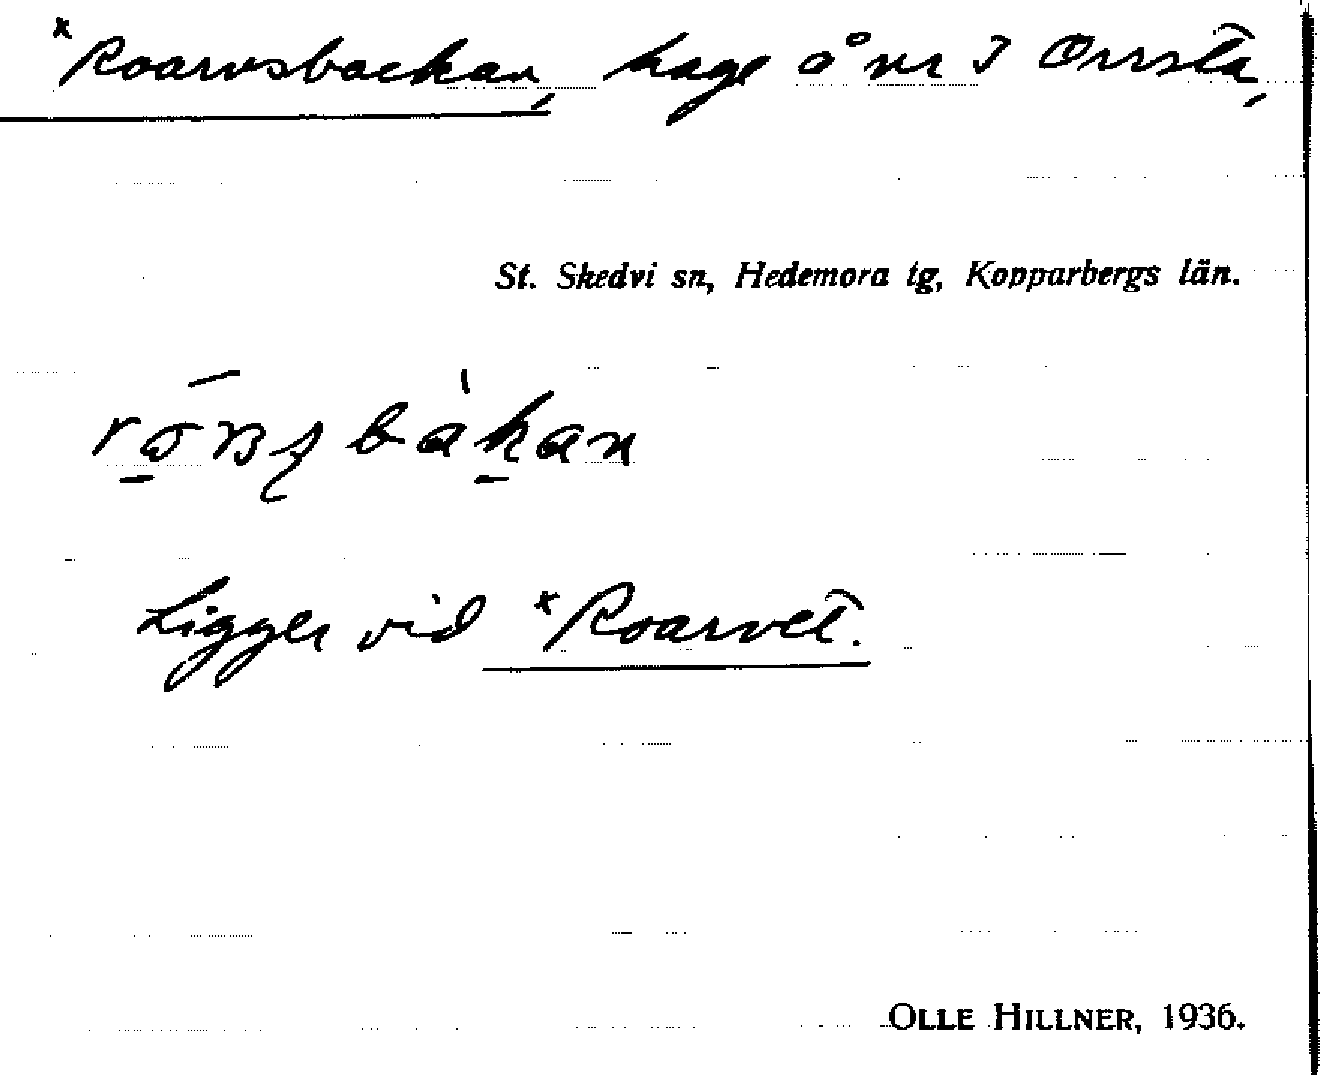 *Roarvsbackan, hage å nr 7 Orrsta,
St. Skedvi sn, Hedemora tg, Kopparbergs län.
Ligger vid *Roarvet.
OLLE HILLNER, 1936.